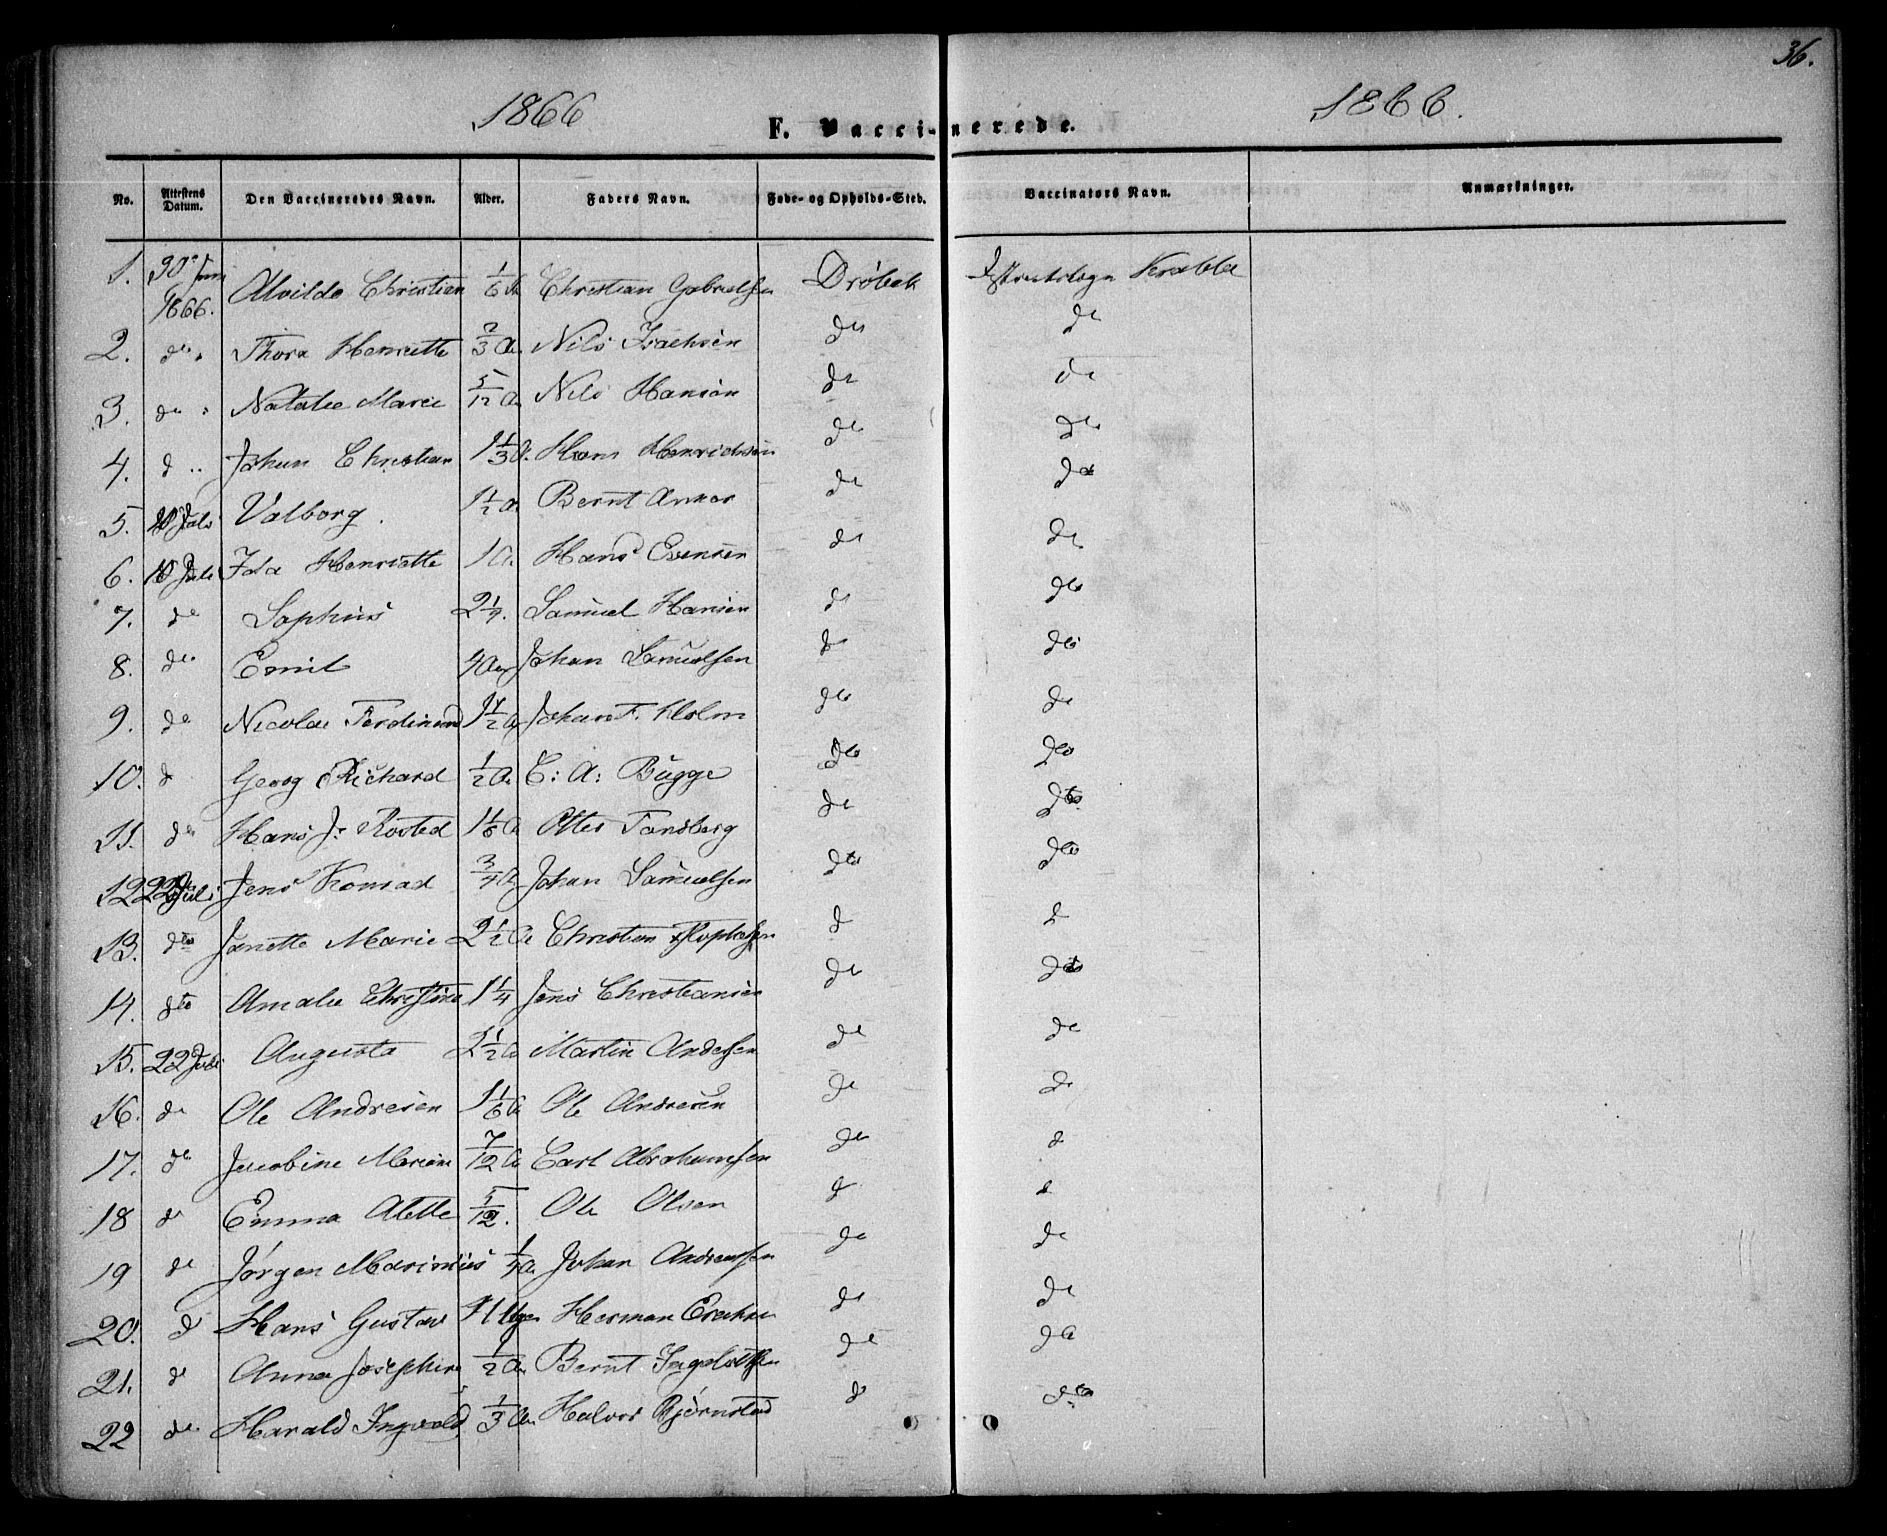 36.
1866 1866.
F. Vaccinerede.
No. Attestens Datum. Den Vaccineredes Navn. Alder. Faders Navn. Føde- og Opholds-Sted. Vaccinators Navn. Anmærkninger.
1. 30 Juni 1866. Alvilde Christian 1/6 A Christian Gabrielsen Drøbak
2. do. Thora Henriette 2/3 A. Nils do do
3. do Natalie Marie 5/12 A Nils Hansen do do
4. d Johan Christian 1 1/3 A. Hans Henrichsen do do
5. Juli Valborg. 1 1/2 A Bernt Anker do do
6. 10 Juli Ida Henriette 1 A. Hans Evensen do do
7. do Sophus Samuel Hansen do do
8. do Emil 4 Aar Johan Samuelsen do do
9. do Nicolai Ferdinand 1 1/2 A Johan F. Holm do do
10. d Georg Richard 1/2 A. C: A: Bugge do do
11. do Hans J. Rosted 1 1/6 A Otter Tandberg do do
12 22 Juli Jens Konrad 3/4 A Johan Samuelsen do do
13. dto Janette Marie 2 1/2 A Christian d d
14. dto Amalie Christine 1 1/4 Jens Christiansen do do
15. 22 Juli Augusta 2 1/2 A Martin Andersen do do
16. do Ole Andresen 1 1/6 A Ole Andresen do do
17. do Jacobine 7/12 A Carl Abrahamsen do d
18 d Emma Alette 5/12. Ole Olsen d d
19 do Jørgen Marinius 1/4 A. Johan Andreassen do do
20. d Hans Gustav Herman do do
21. d Anna Josephine 1/2 A. Bernt do do
22 do Harald Ingvald 1/3 A. Halvor Bjørnstad d do